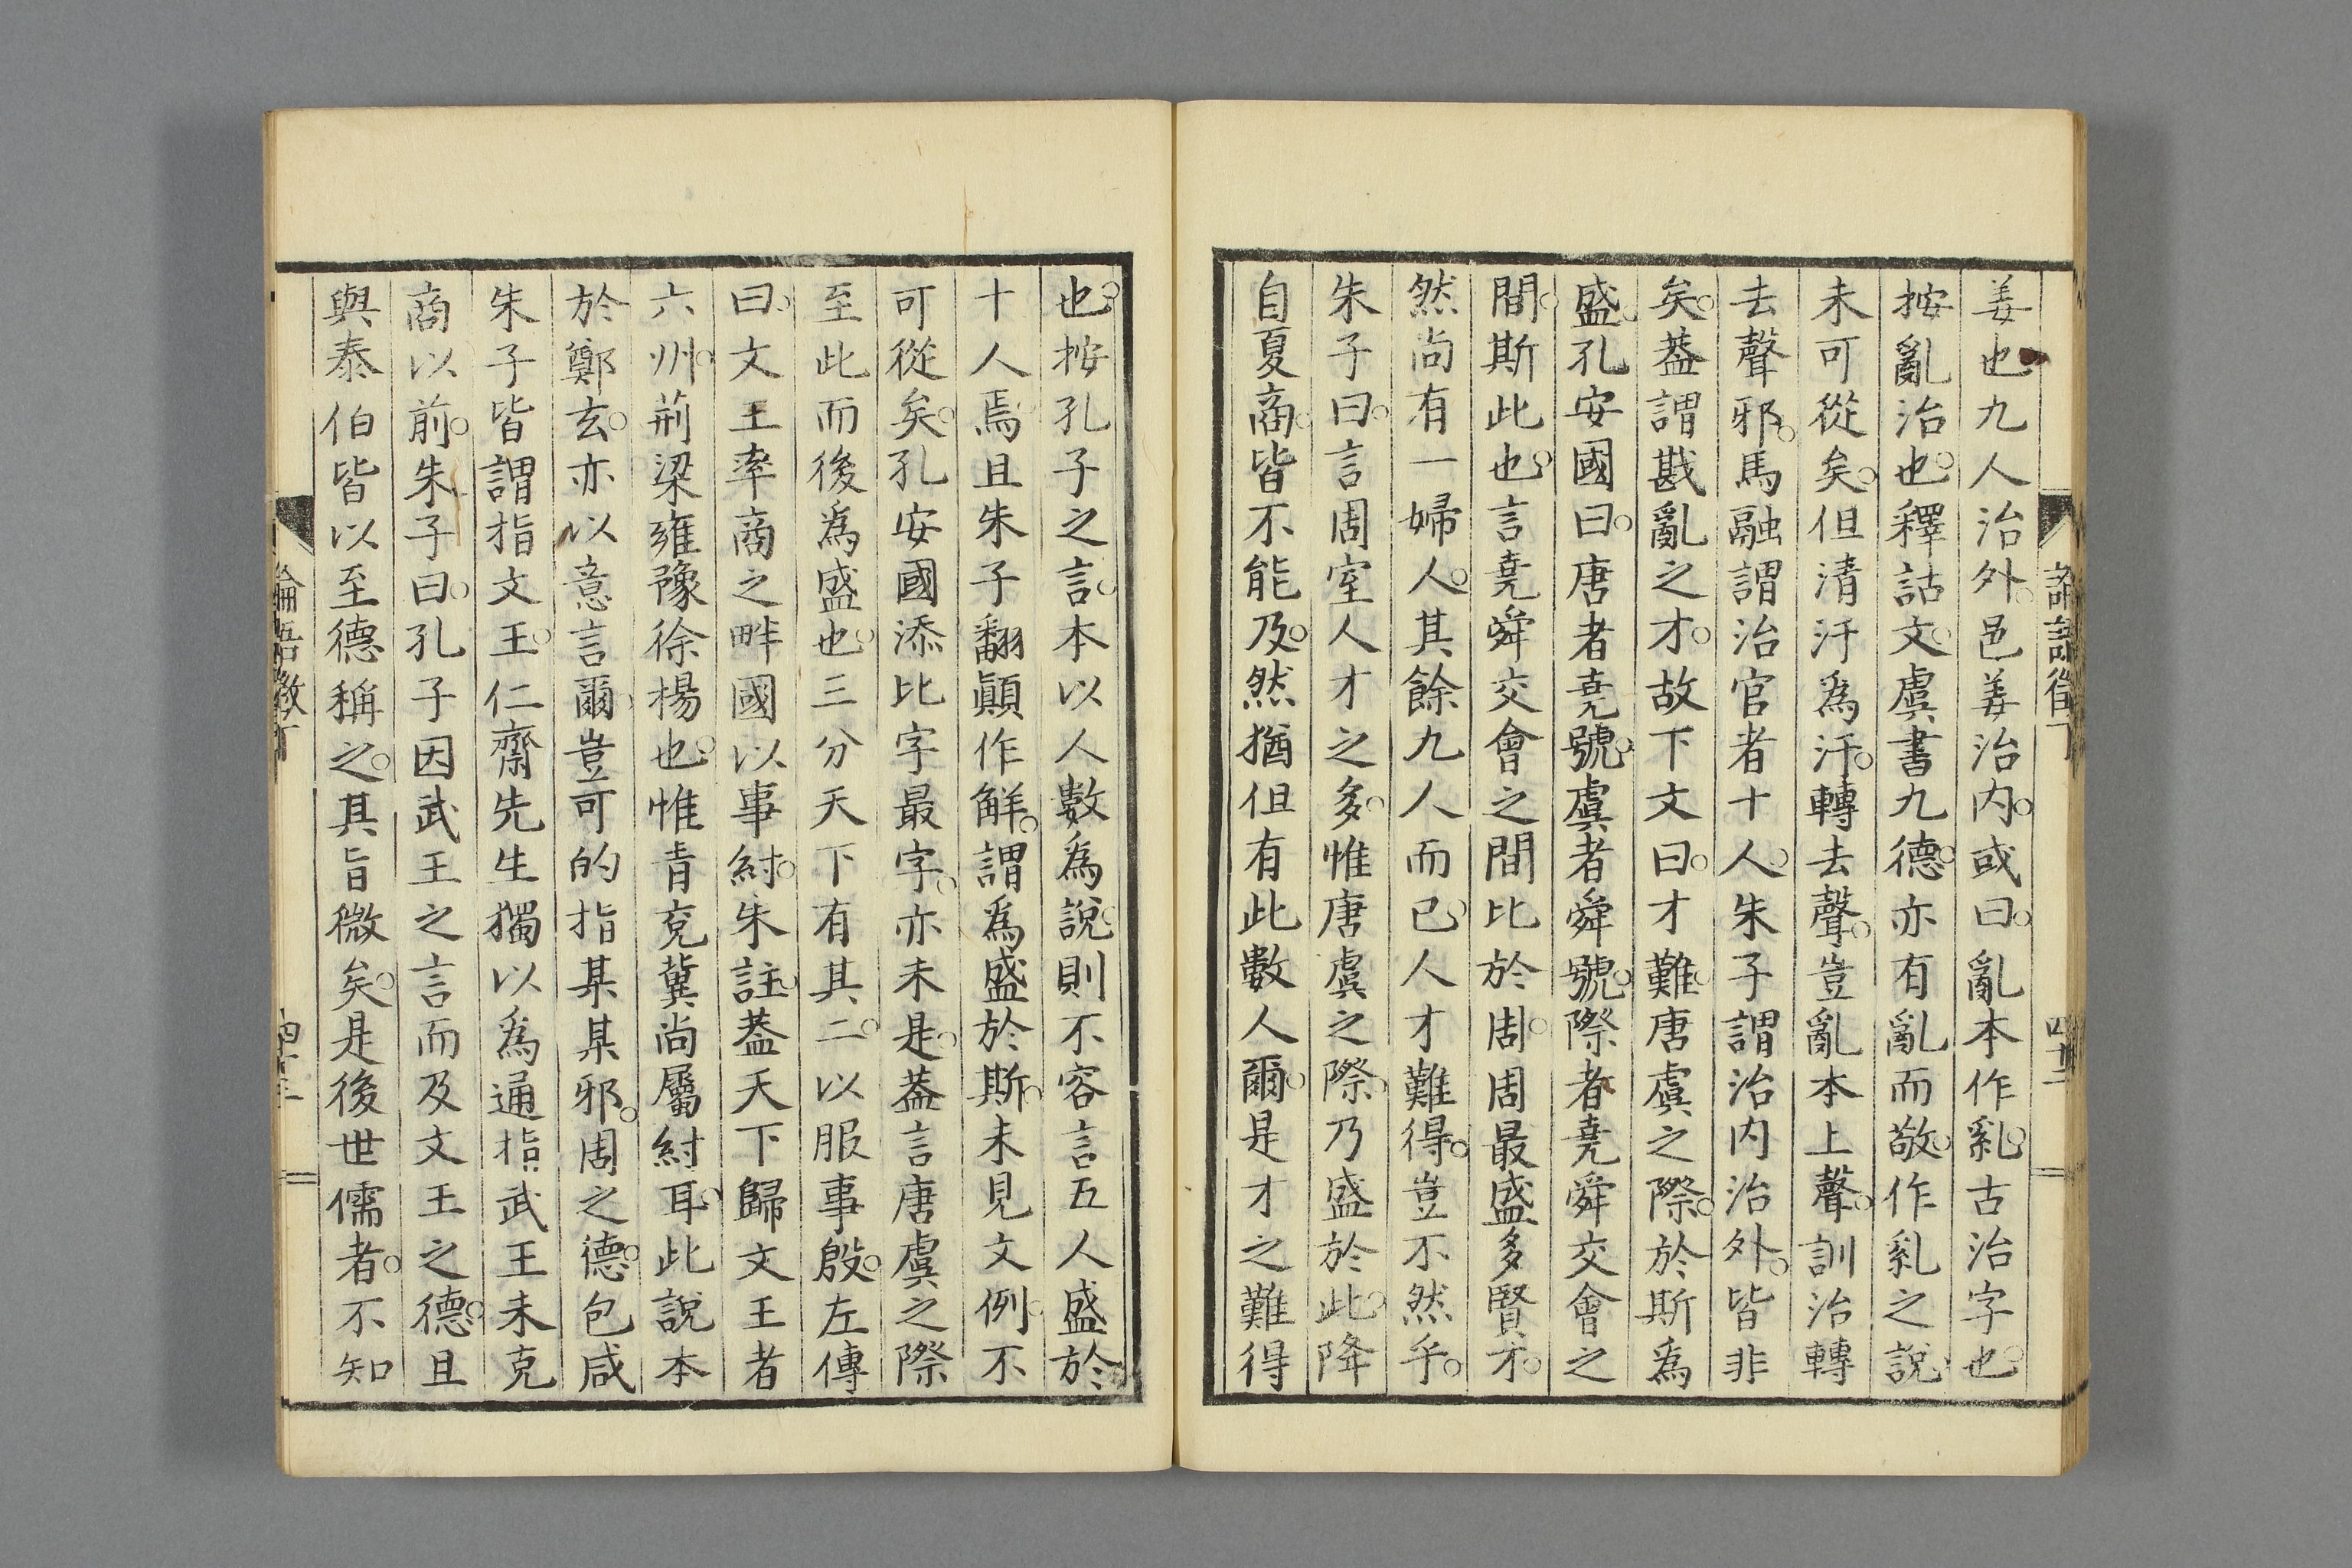 姜也九人治外邑姜治内或曰亂本作乿古治字也
按亂治也釋詁文虞書九德亦有亂而敬作乿之說
未可從矣但清汙爲汙轉去聲豈亂本上聲訓治轉
去聲邪馬融謂治官者十人朱子謂治内治外皆非
矣蓋謂戡亂之才故下文曰才難唐虞之際於斯爲
盛孔安國曰唐者堯號虞者舜號際者堯舜交會之
間斯此也言堯舜交會之間比於周周最盛多賢才
然尚有一婦人其餘九人而已人才難得豈不然乎
朱子曰言周室人才之多惟唐虞之際乃盛於此降
自夏商皆不能及然猶但有此數人爾是才之難得
也按孔子之言本以人數爲說則不容言五人盛於
十人焉且朱子翻顚作觧謂爲盛於斯未見文例不
可從矣孔安國添比字最字亦未是蓋言唐虞之際
至此而後爲盛也三分天下有其二以服事殷左傳
曰文王率商之畔國以事紂朱註蓋天下歸文王者
六州荊梁雍豫徐楊也惟青兗冀尚屬紂耳此說本
於鄭玄亦以意言爾豈可的指某某邪周之德包咸
朱子皆謂指文王仁齋先生獨以爲通指武王未克
商以前朱子曰孔子因武王之言而及文王之德且
與泰伯皆以至德稱之其旨微矣是後世儒者不知
論語徵丁